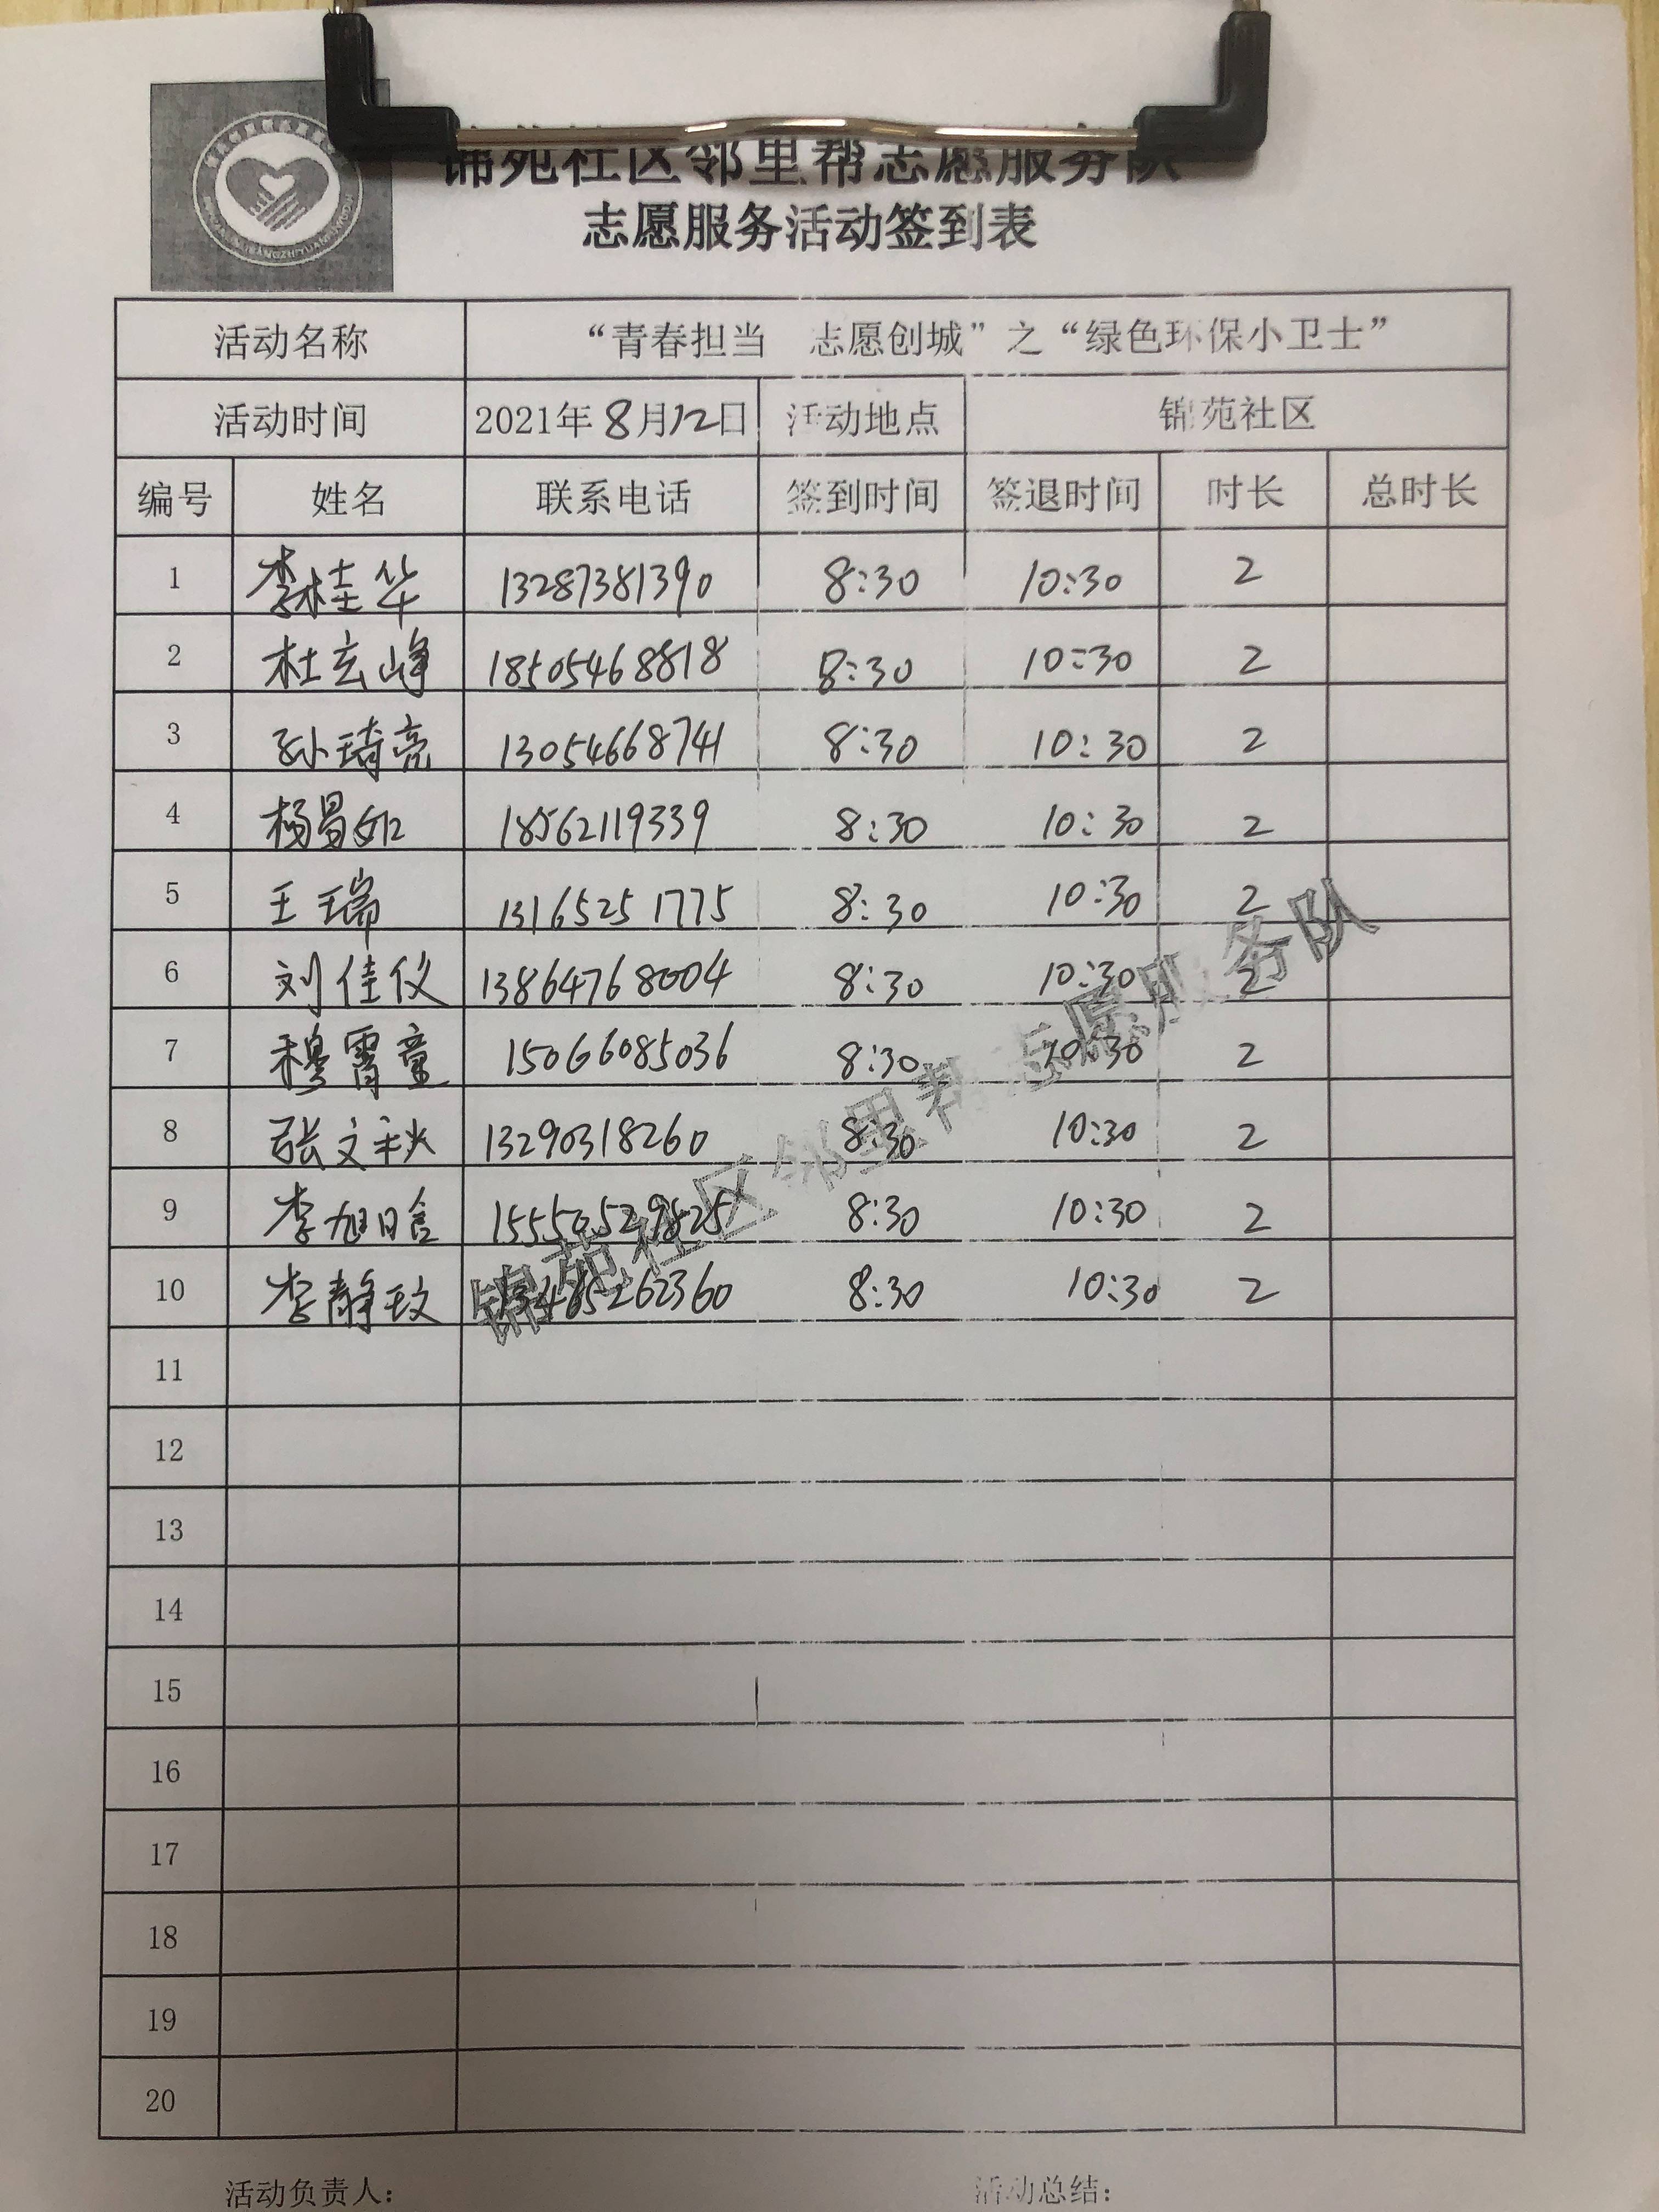 锦苑社区邻里帮志愿服务队
志愿服务活动签到表
活动名称 “青春担当 志愿创城”之“绿色环保小卫士”
活动时间 2021年8月12日 活动地点 锦苑社区
编号 姓名 联系电话 签到时间 签退时间 时长 总时长
1 李桂华 13287381390 8:30 10:30 2
2 杜玄峰 18505468818 8:30 10:30 2
3 孙琦亮 13054668741 8:30 10:30 2
4 杨昌如 18562119339 8:30 10:30 2
5 王瑞 13165251775 8:30 10:30 2
6 刘佳仪 13864768004 8:30 10:30 2
7 穆霄童 15066085036 8:30 10:30 2
8 张文秋 13290318260 8:30 10:30 2
9 李旭晗 8:30 10:30 2
10 李静玟 13485262360 8:30 10:30 2
11
12
13
14
15
16
17
18
19
20
锦苑社区邻里帮志愿服务队
活动负责人： 活动总结：